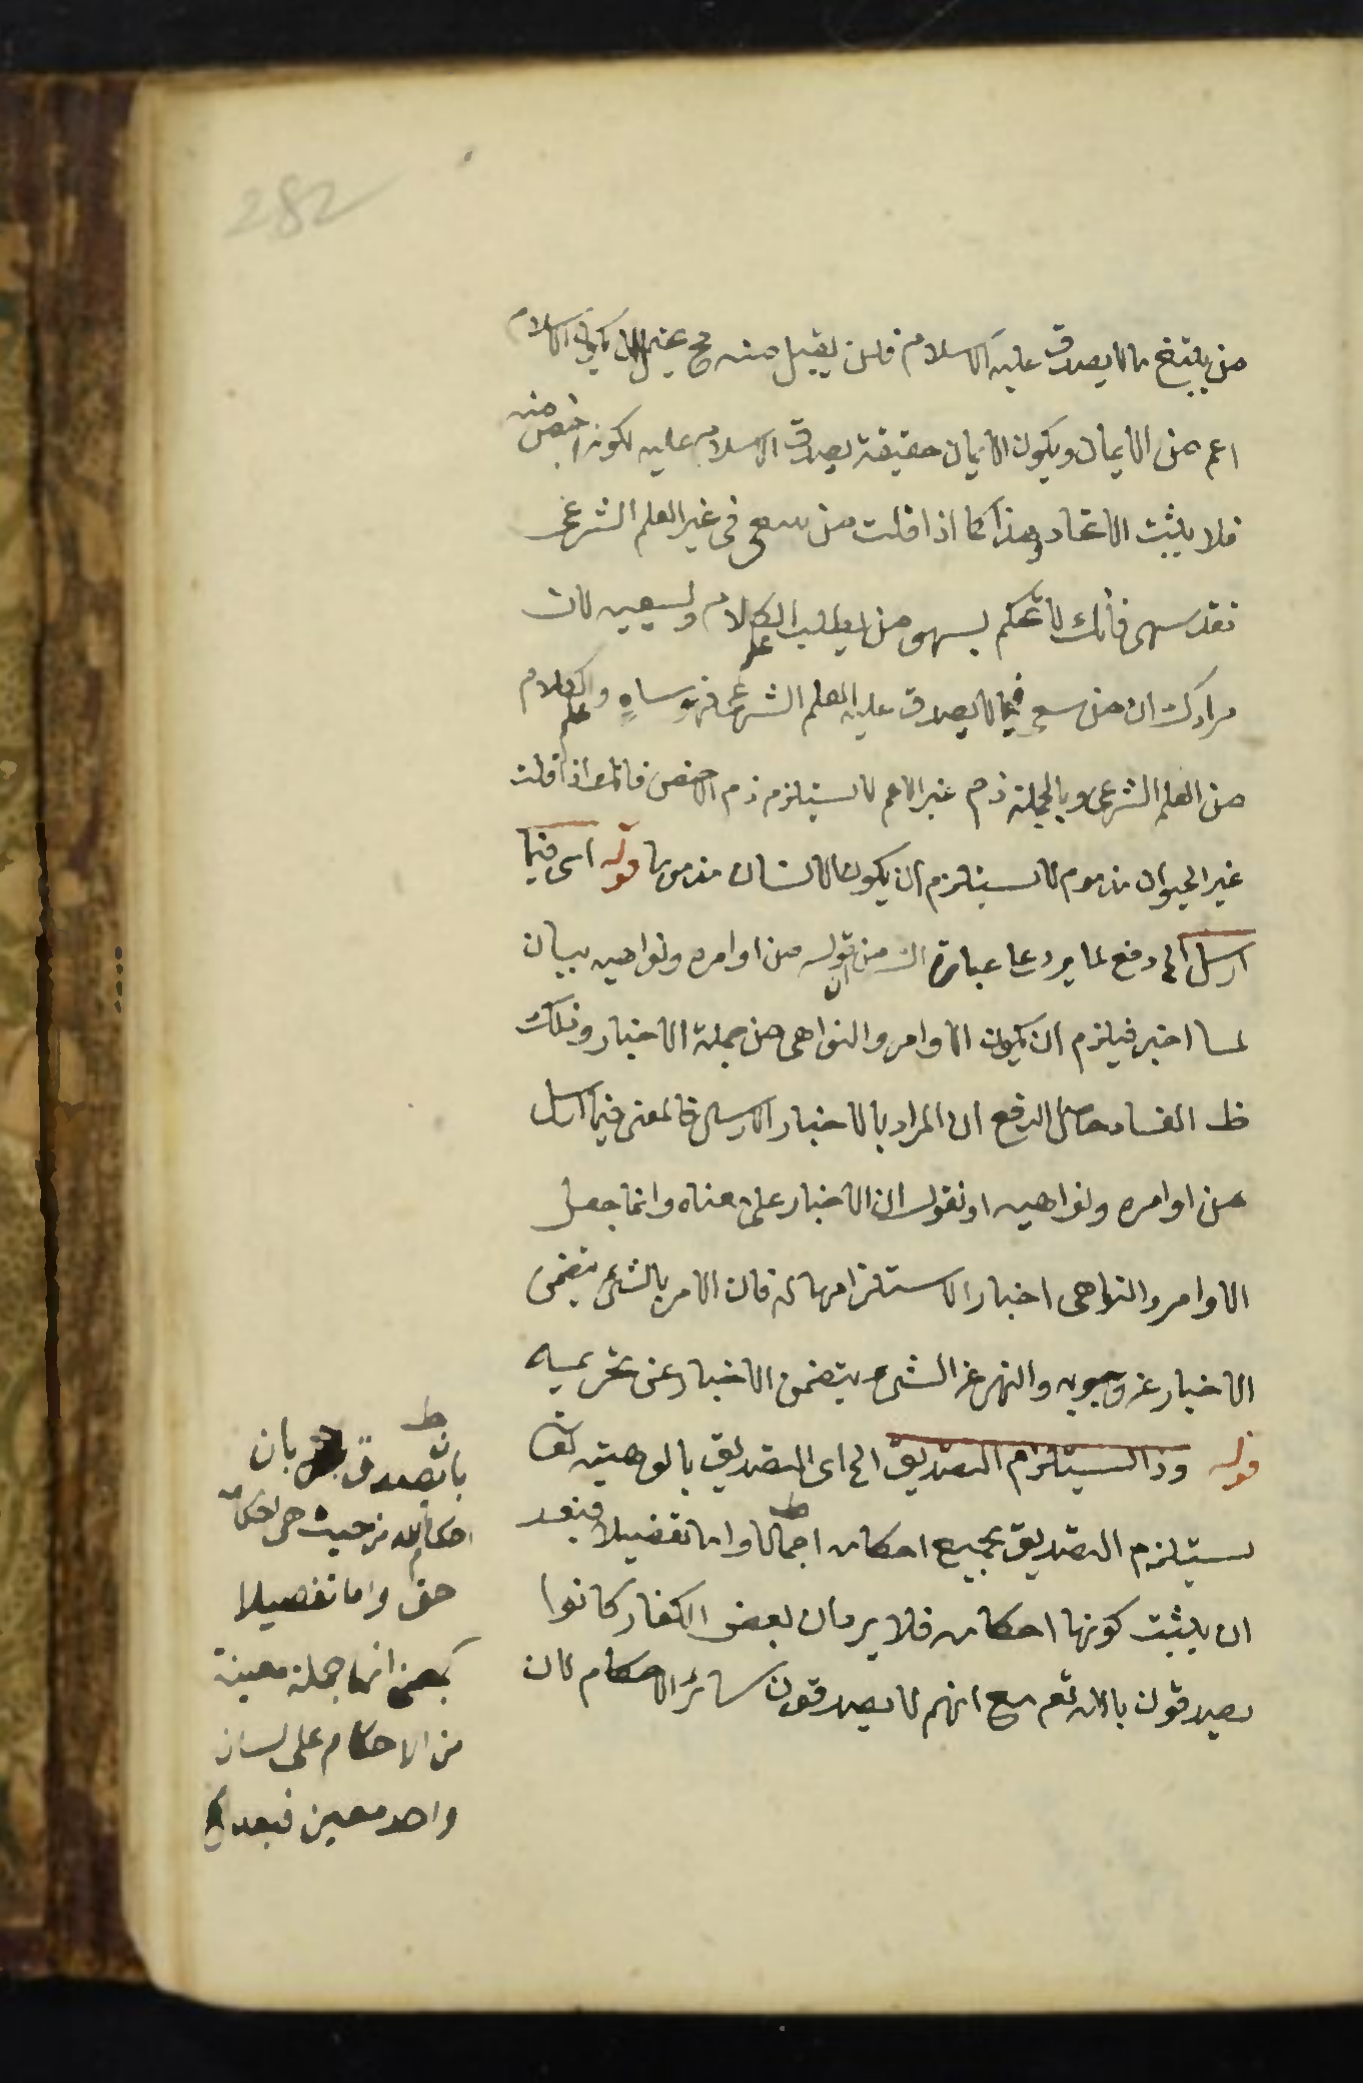 282
من يبتغ ما لا يصدق عليه الاسلام فلن يقبل منه ح يكون الاسلام
اعم من الايمان ويكون الايمان حقيقة يصدق الاسلام عليه لكونه اخص منه
فلا يثبت الاتحاد وهذا كما اذا قلت من سعى فى غير العلم الشرعى
فقد سهى فانك لا تحكم بسهو من يطلب علم الكلام ويسعيه لان
مرادك ان من سعى فيما لا يصدق عليه العلم الشرعى فهو ساهٍ وعلم الكلام
من العلم الشرعى وبالجملة ذم غير الاعم لا يستلزم ذم الاخص فانك اذا قلت
غير الحيوان مذموم لا يستلزم ان يكون الانسان مذموما قوله اى فيما
ارسل الخ دفع لما يرد على عبارة الش من ان قوله من اوامره ونواهيه بيان
لما اخبر فيلزم ان يكون الاوامر والنواهى من جملة الاخبار وذلك
ظ الفساد حاصل الدفع ان المراد بالاخبار الارسال فالمعنى فيما ارسل
من اوامره ونواهيه او نقول ان الاخبار على معناه وانما جعل
الاوامر والنواهى اخبارا لاستلزامها له فان الامر بالشئ يتضمن
الاخبار عن وجوبه والنهى عن الشئ يتضمن الاخبار عن تحريمه
قوله وذا يستلزم التصديق الخ اى التصديق بالوهيته تعا
يستلزم التصديق بجميع احكامه اجمالا واما تفصيلا فبعد
ان يثبت كونها احكامه فلا يرد ان بعض الكفار كانوا
يصدقون بالله تع مع انهم لا يصدقون سائر الاحكام لان
ط
بان يصدق بان
احكام الله من حيث هى احكامه
حق واما تفصيلا
بمعنى انها جملة معينة
من الاحكام على لسان
واحد معين فبعد